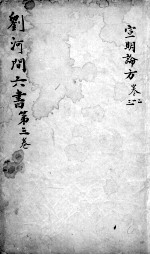 宣明論方 卷二
劉河間六書第三卷